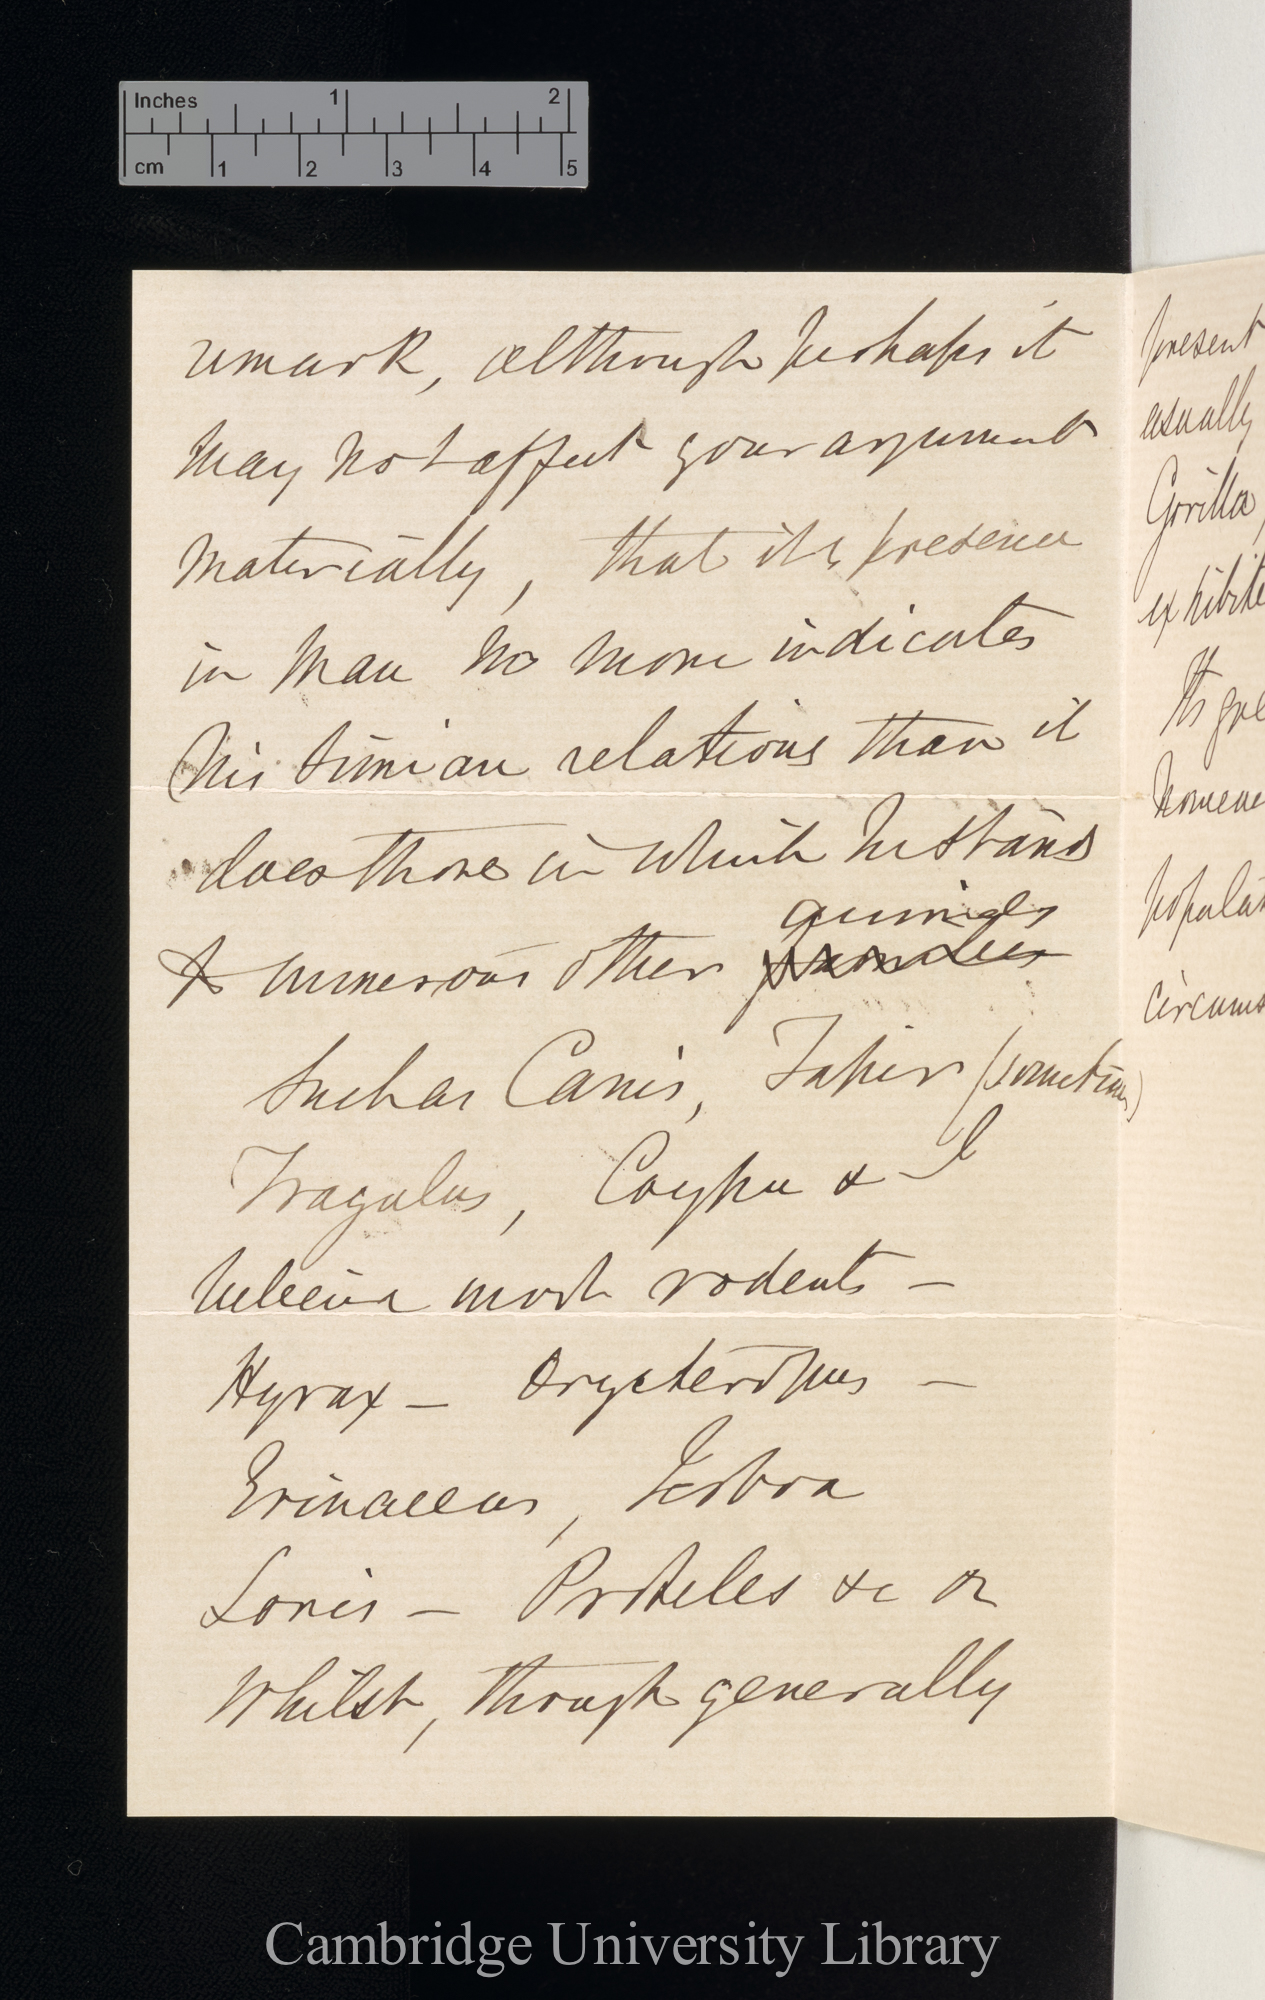 Inches 1 2
cm 1 2 3 4 5
remark, although perhaps it
may not affect your argument
materially, that its presence
in Man no more indicates
his Simian relations than it
does those in which he stands
& numerous other
animals
Such as Canis, Tapir (sometimes)
Tragulus, Coypu & I
believe most rodents –
Hyrax – Orycteropus –
Erinaceus, Jerboa
Loris – Proteles &c &c
Whilst, though generally
present
usually
Gorilla,
exhibite
Its gre
however
popula
circums
Cambridge University Library